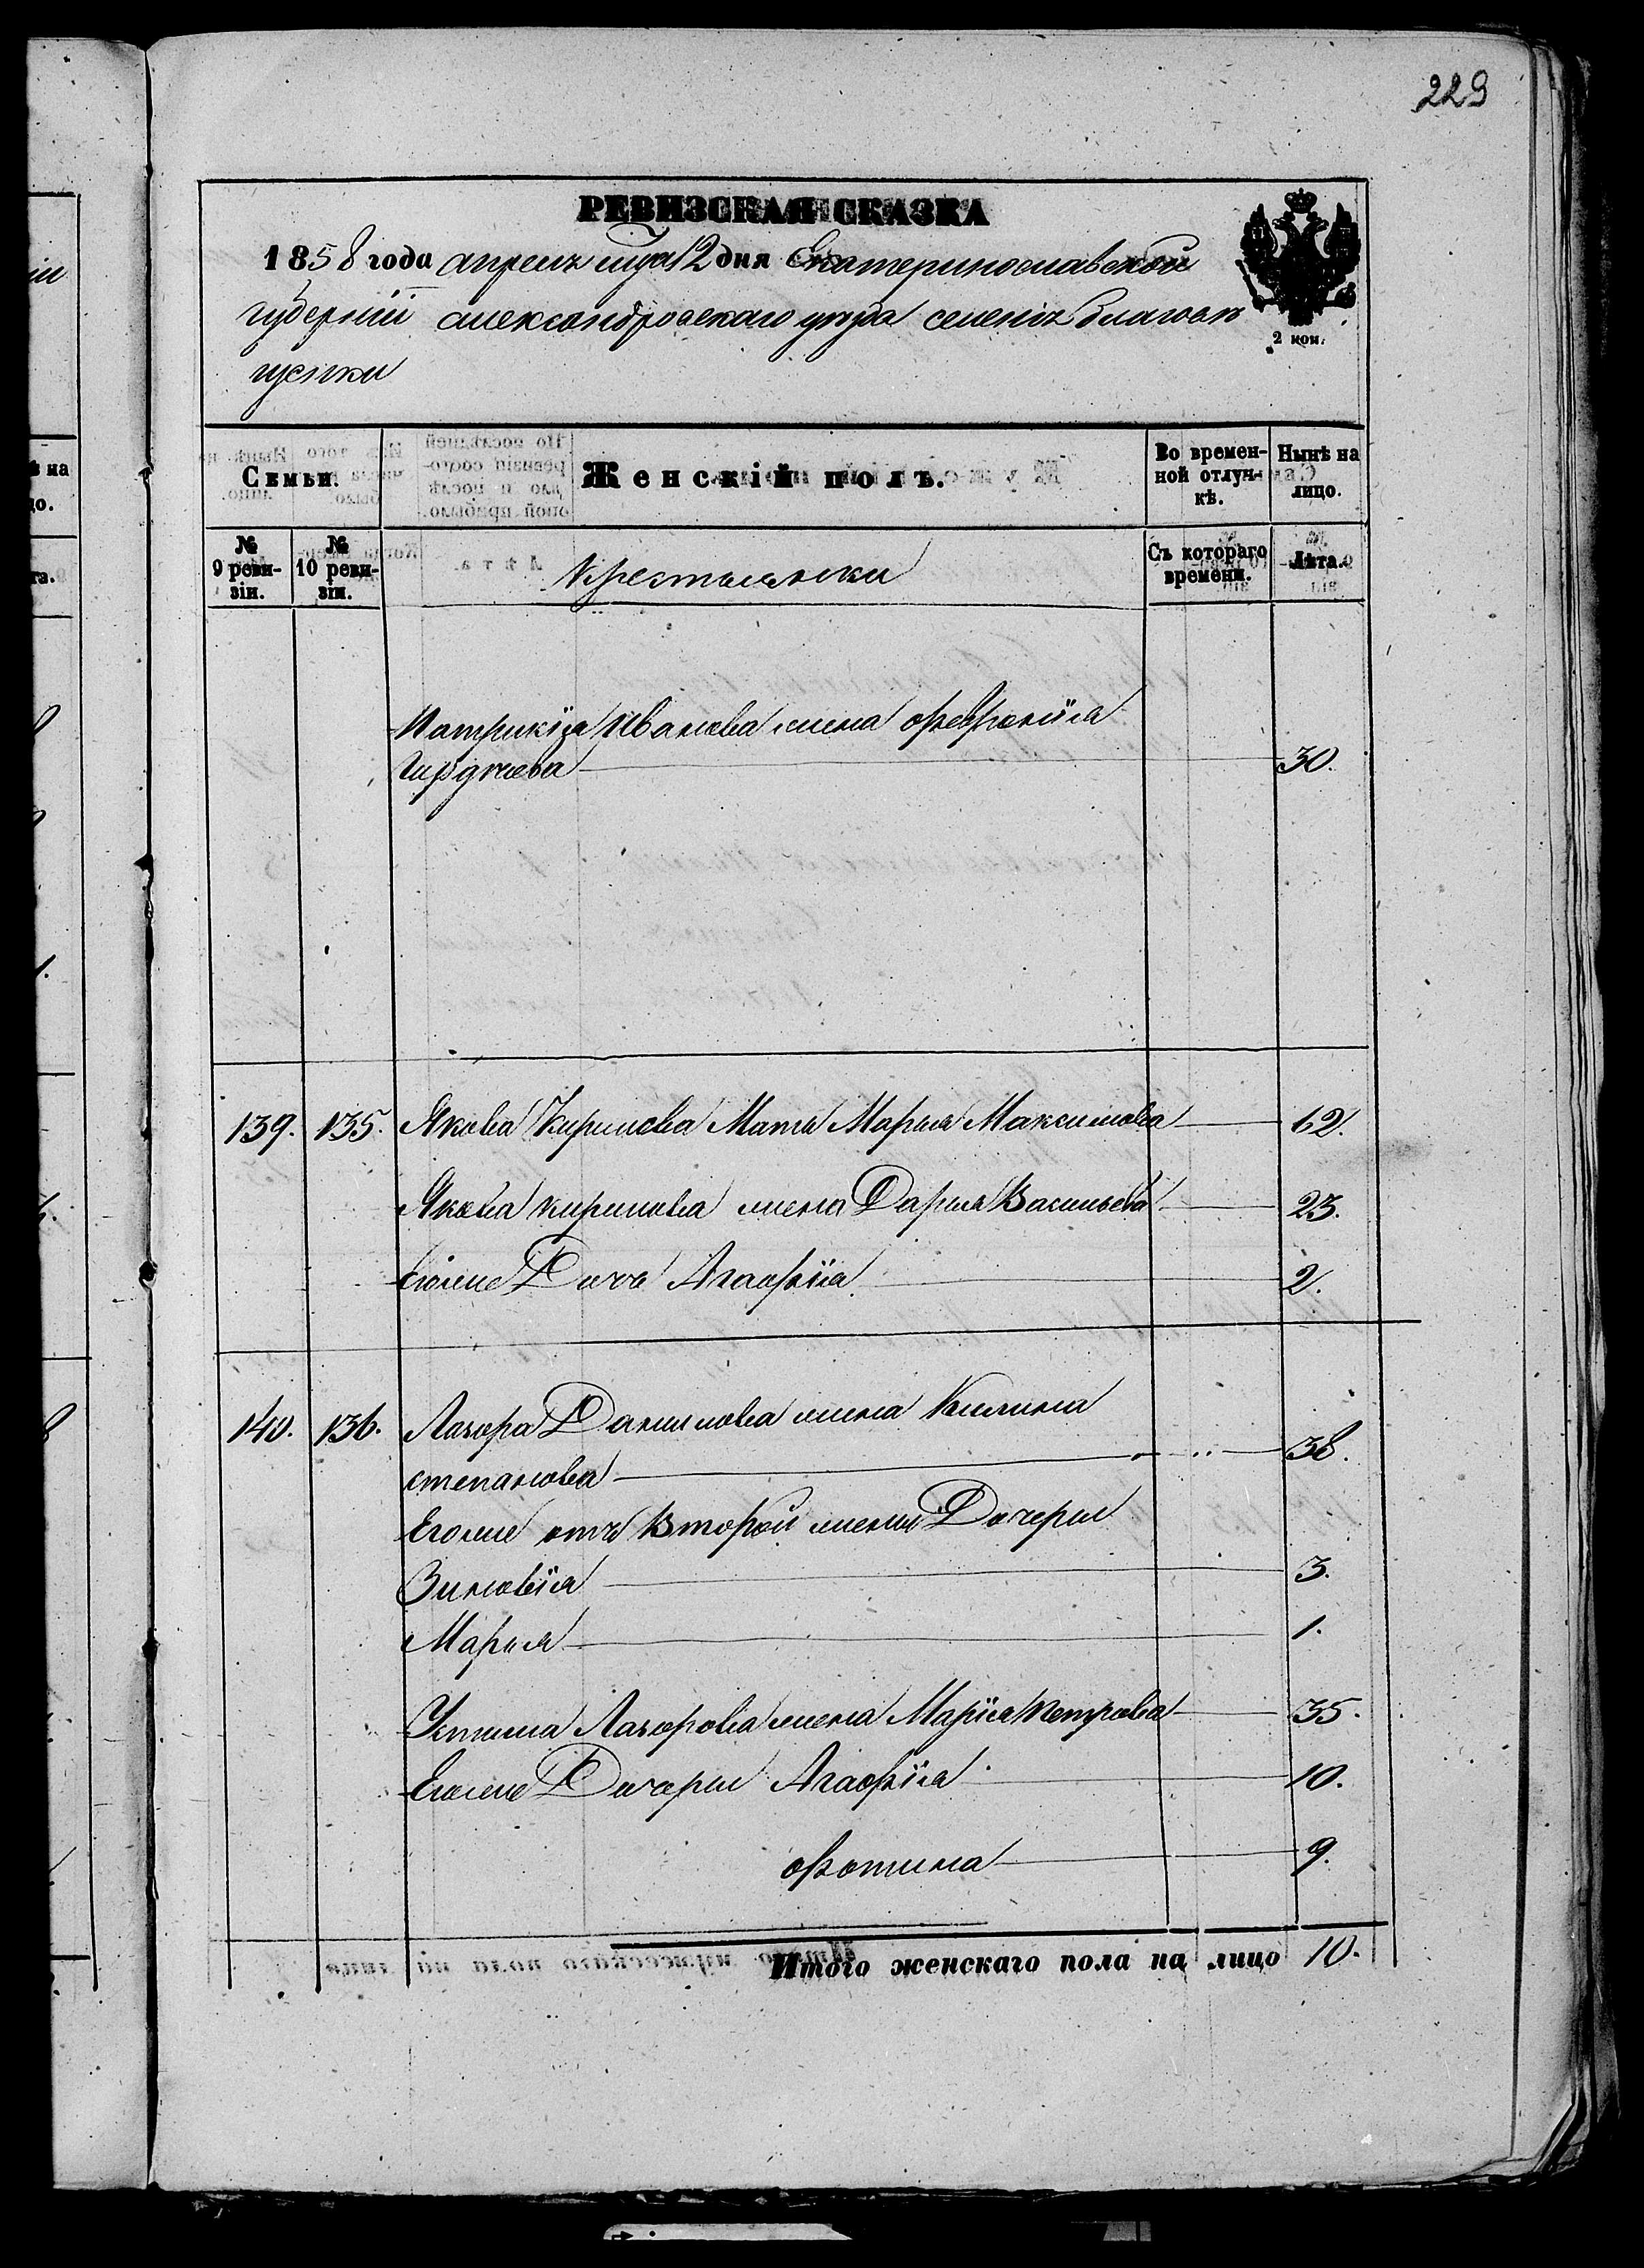 229
РЕВИЗСКАЯ СКАЗКА
1858 года апреля мца 12 дня Екатеринославской
губерніи александровскаго уезда селенія благовѣ
щенки
2 коп.
Семьи.
Женскій полъ.
Во времен-
ной отлуч-
кѣ.
Нынѣ на
лицо.
№
9 реви-
зіи.
№
10 реви-
зіи.
Крестьянки
Съ котораго
времени.
Лѣта.
Патрикія Иванова жена Февронія
30.
139. 135. Якова Кирилова Мать Марья Максимова 62.
Якова Кирилова жена Дарья Васильева 23.
Егоже Дочь Агафія 2.
140. 136. Лазора Данилова жена Килина
степанова 38.
Егоже отъ Второй жены Дочери
Зиновія 3.
Марья 1.
Устина Лазорова жена Марія Петрова 35.
Егоже Дочери Агафія 10.
Фотина 9.
Итого женскаго пола на лицо 10.